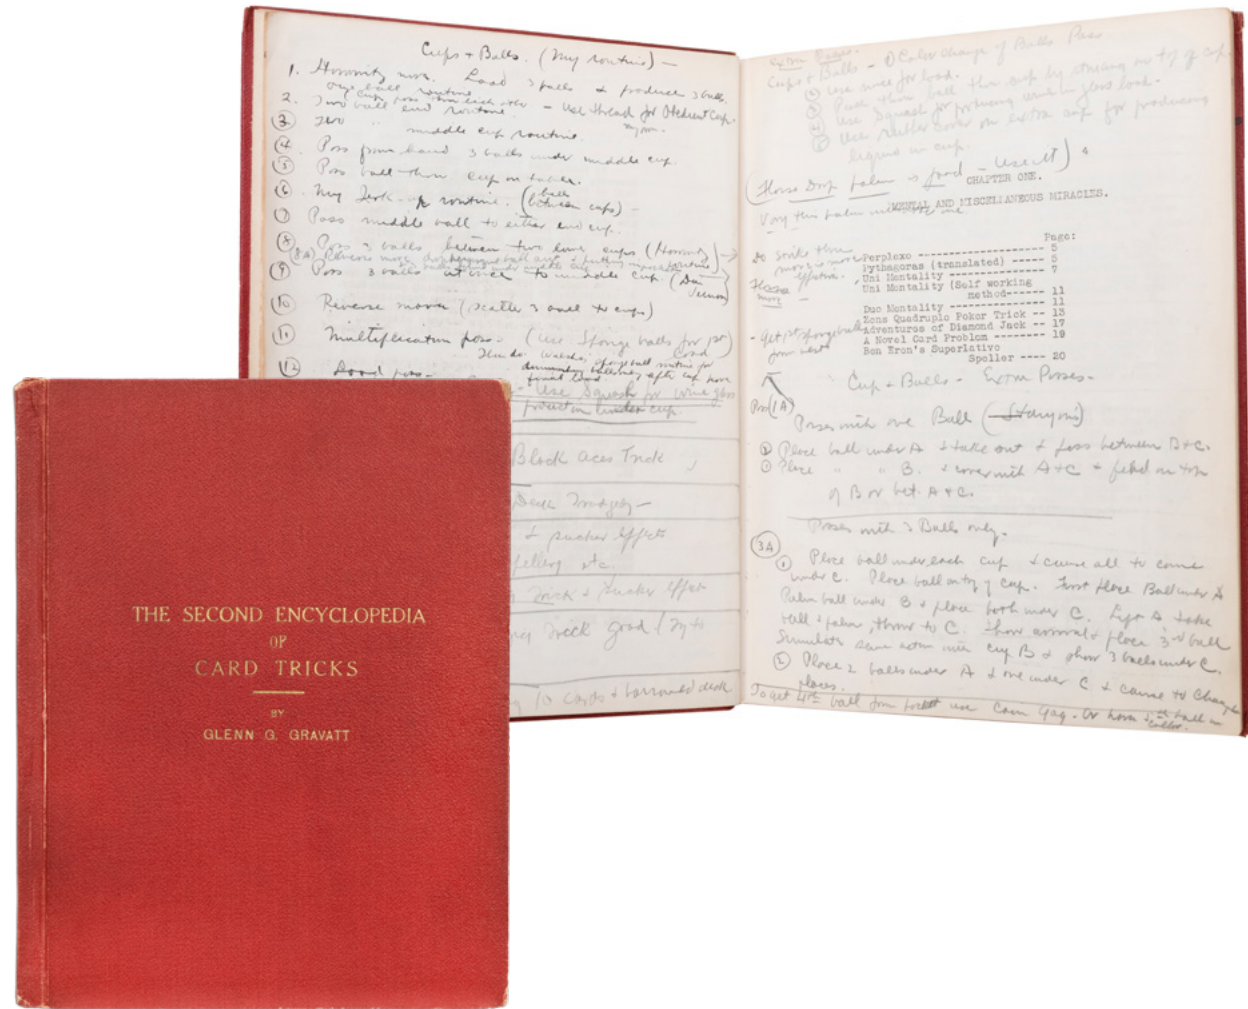 Cups + Balls. (My routine) —
1. Horowitz move. Load 3 balls & produce 3 balls.
One ball routine
2. Two ball end routine. - Use thread for Obedient Cup.
3 Two " middle cup routine.
4 Pass from hand 3 balls under middle cup.
5 Pass ball thru cup on table.
6. My routine. (balls between cups) —
7 Pass middle ball to either end cup.
8 Pass 3 balls between two cups (Horowitz
8A Reverse move
9 Pass 3 balls at once to middle cup (Dai Vernon)
10 Reverse move (scatter 3 balls to cups)
11 Multiplication pass. (Use Sponge balls for 1st load)
sponge ball routine for
after cup move
final load.
12 Load pass.
- Use Squash for wine glass
production under cup.
Block Aces Trick
& sucker effects
Spelling etc.
Trick & Sucker Effect
Trick good (Try to
10 cards & borrowed deck
Extra Passes.
Cups + Balls - ① Color change of Balls Pass
② Use mice for load.
③ Push thru ball thru cup by striking on top of cup.
④ Use Squash for producing wine in glass load.
⑤ Use rubber cover on extra cup for producing
liquid in cup.
(Horo Drop palm is good - Use it) 4
CHAPTER ONE.
Vary this palm with
MENTAL AND MISCELLANEOUS MIRACLES.
Page:
Do strike thru
move is more
effective.
Perplexo ---------------- 5
Pythagoras (translated) ----- 5
Uni Mentality ------------ 7
Uni Mentality (Self working
method------ 11
Duo Mentality ------------ 11
Zens Quadruplo Poker Trick -- 13
Adventures of Diamond Jack -- 17
A Novel Card Problem ------- 19
Ben Eron's Superlativo
Speller ---- 20
- Get 1st sponge ball
from vest
Cup + Balls - Extra Passes -
Pass (1A)
Passes with one Ball (Stanyon's)
② Place ball under A & take out & pass between B+C.
① Place " " B. & cover with A+C & find on top
of B or bet. A+C.
Passes with 3 Balls only.
3A
① Place ball under each cup & cause all to come
under C. Place ball on top of cup. First place Ball under A
Palm ball under B & place both under C. Lift A & take
ball & palm, throw to C. Show arrival & place 3rd ball
Simulate same action with cup B & show 3 balls under C.
② Place 2 balls under A & one under C & cause to change
places.
To get 4th ball from pocket use Coin Gag. Or have ball in
collar.
THE SECOND ENCYCLOPEDIA
OF
CARD TRICKS
BY
GLENN G. GRAVATT